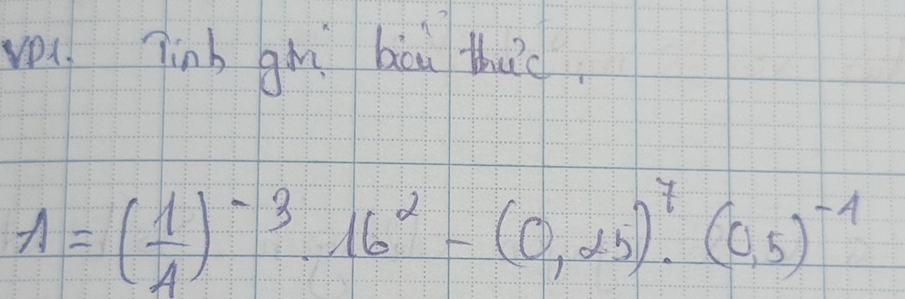 VD1. Tính gtrị biểu thức.
A = (1/4)^-3 . 16^2 - (0,25)^7 . (0,5)^-1